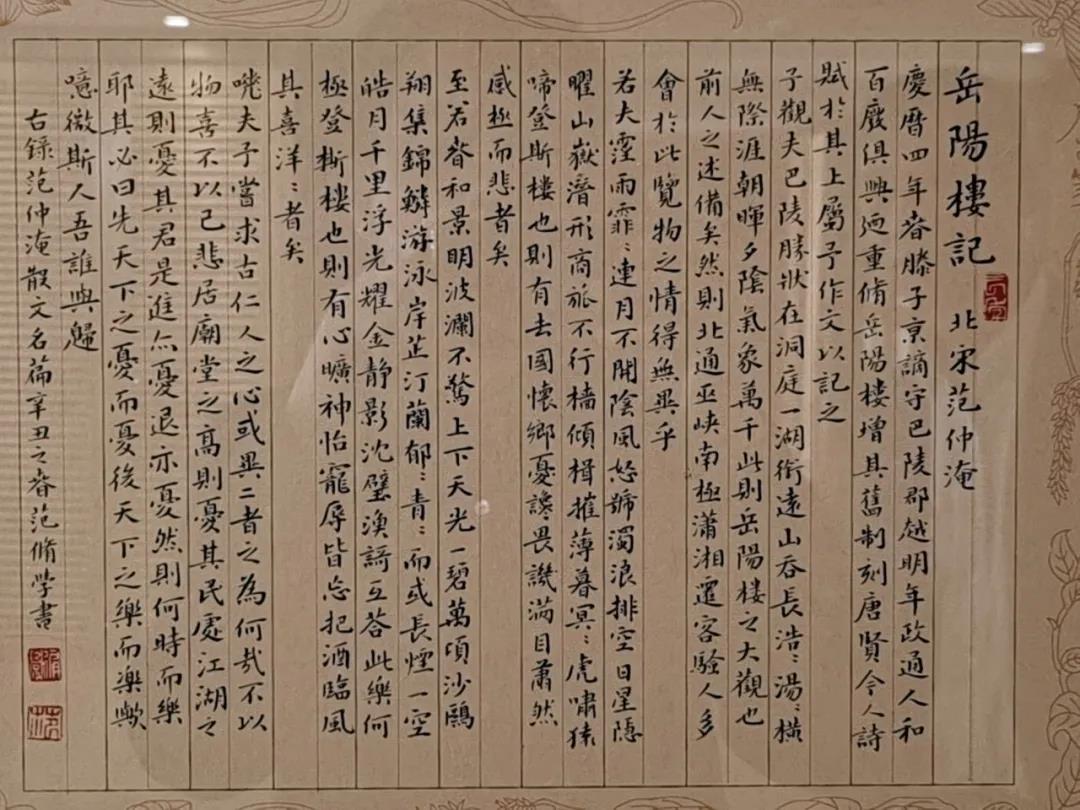 岳陽樓記 北宋范仲淹
慶曆四年春滕子京謫守巴陵郡越明年政通人和
百廢俱興廼重脩岳陽樓增其舊制刻唐賢今人詩
賦於其上屬予作文以記之
予觀夫巴陵勝狀在洞庭一湖銜遠山吞長浩〻湯〻橫
無際涯朝暉夕陰氣象萬千此則岳陽樓之大觀也
前人之述備矣然則北通巫峽南極瀟湘遷客騷人多
會於此覽物之情得無異乎
若夫霪雨霏〻連月不開陰風怒號濁浪排空日星隱
曜山嶽潛形商旅不行檣傾楫摧薄暮冥〻虎嘯猿
啼登斯樓也則有去國懷鄉憂讒畏譏滿目蕭然
感極而悲者矣
至若春和景明波瀾不驚上下天光一碧萬頃沙鷗
翔集錦鱗游泳岸芷汀蘭郁〻青〻而或長煙一空
皓月千里浮光耀金静影沈璧漁謌互答此樂何
極登斯樓也則有心曠神怡寵辱皆忘把酒臨風
其喜洋〻者矣
嗟夫予嘗求古仁人之心或異二者之為何哉不以
物喜不以己悲居廟堂之高則憂其民處江湖之
遠則憂其君是進亦憂退亦憂然則何時而樂
耶其必曰先天下之憂而憂後天下之樂而樂歟
噫微斯人吾誰與歸
右錄范仲淹散文名篇辛丑之春范脩學書